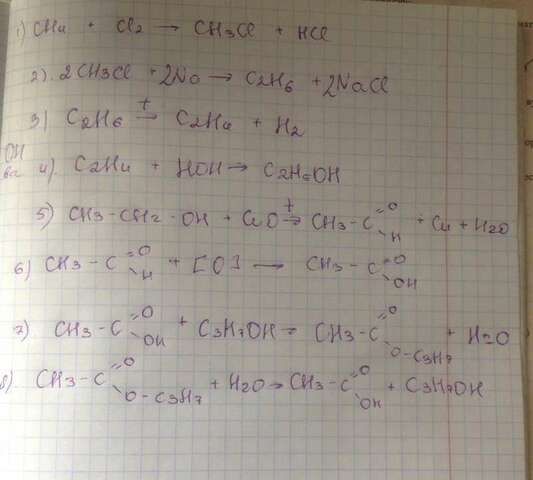 1) CH4 + Cl2 → CH3Cl + HCl
2). 2CH3Cl + 2Na → C2H6 + 2NaCl
3) C2H6 t→ C2H4 + H2
4). C2H4 + HOH → C2H5OH
5) CH3-CH2-OH + CuO t→ CH3-C=O-H + Cu + H2O
6) CH3-C=O-H + [O] → CH3-C=O-OH
7) CH3-C=O-OH + C3H7OH → CH3-C=O-O-C3H7 + H2O
8). CH3-C=O-O-C3H7 + H2O → CH3-C=O-OH + C3H7OH